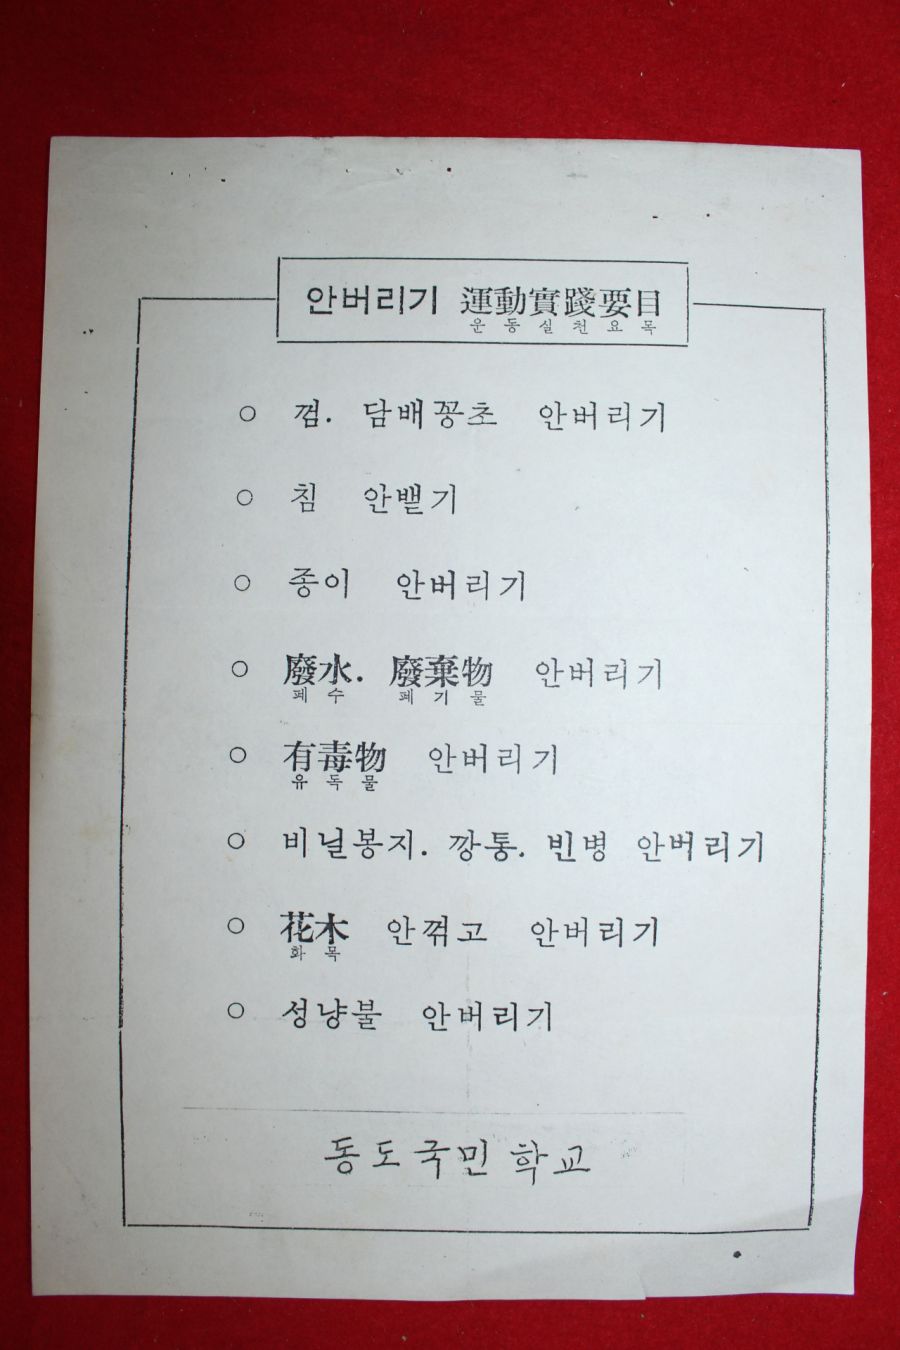 안버리기 運動實踐要目
운동실천요목
○ 껌. 담배꽁초 안버리기
○ 침 안밷기
○ 종이 안버리기
○ 廢水. 廢棄物 안버리기
폐수 폐기물
○ 有毒物 안버리기
유독물
○ 비닐봉지. 깡통. 빈병 안버리기
○ 花木 안꺾고 안버리기
화목
○ 성냥불 안버리기
동도국민학교